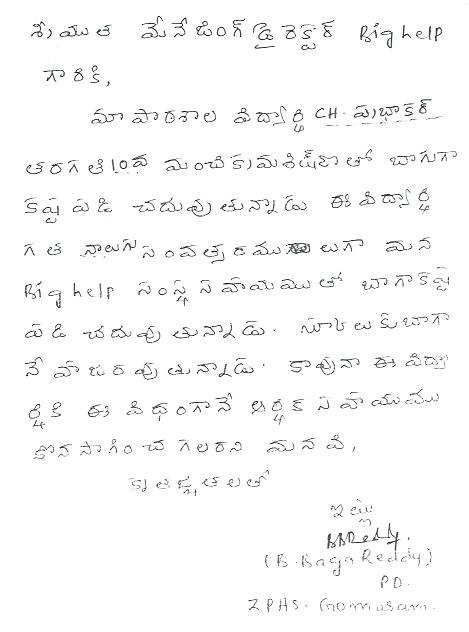 శ్రీయుత మేనేజింగ్ డైరెక్టర్ Big help
గారికి,
మా పాఠశాల విద్యార్థి CH. ప్రభాకర్
తరగతి 10వ మంచి క్రమశిక్షణతో బాగుగా
కష్టపడి చదువుతున్నాడు ఈ విద్యార్థి
గత నాలుగు సంవత్సరములుగా మన
Big help సంస్థ సహాయముతో బాగా కష్ట
పడి చదువుతున్నాడు. స్కూలుకు బాగా
నే హాజరవుతున్నాడు. కావునా ఈ విద్యా
ర్థికి ఈ విధంగానే ఆర్థిక సహాయము
కొనసాగించగలరని మనవి,
కృతజ్ఞతలతో
ఇట్లు
BBReddy.
(B. Baga Reddy)
PD.
ZPHS. Gomasam.